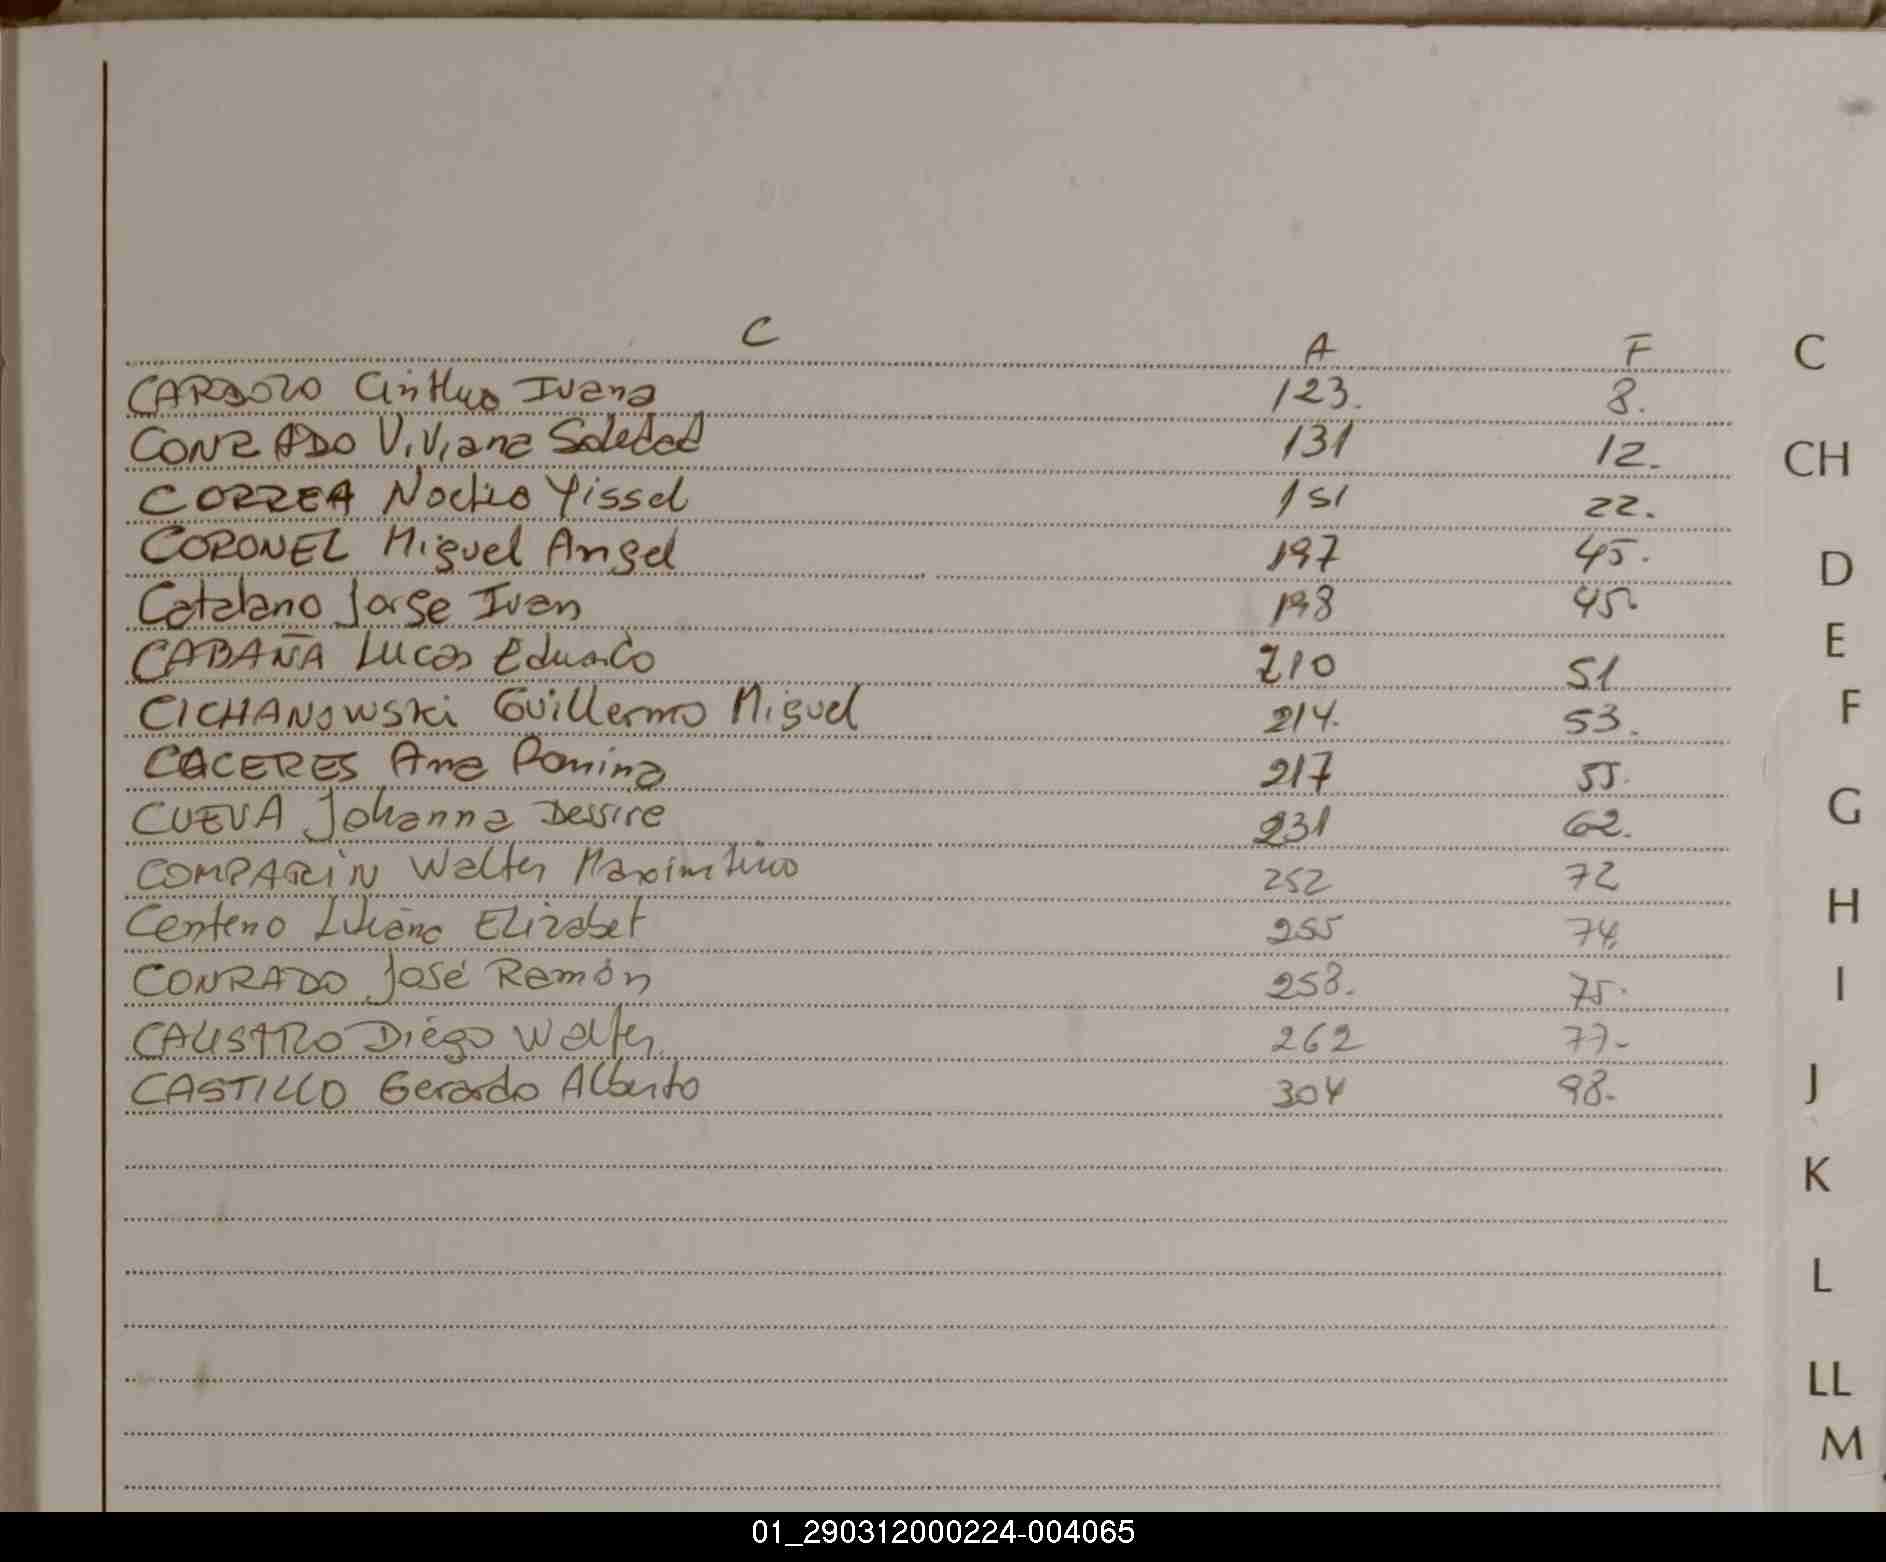 C A F
CARDOZO Cinthia Ivana 123. 8.
CONRADO Viviana Soledad 131 12.
CORREA Yissel 151 22.
CORONEL Miguel Angel 197 45.
Catalano Jorge Ivan 198 45.
CABAÑA Lucas Eduardo 210 51
CICHANOWSKi Guillermo Miguel 214. 53.
CACERES Ana Romina 217 55.
CUEVA Johanna Dessire 231 62.
COMPARIN Walter Maximiliano 252 72
Centeno Elizabet 255 74.
CONRADO José Ramón 258. 75.
CALISTRO Diego Walter. 262 77-
CASTILLO Gerardo Alberto 304 98.
C
CH
D
E
F
G
H
I
J
K
L
LL
M
01_290312000224-004065